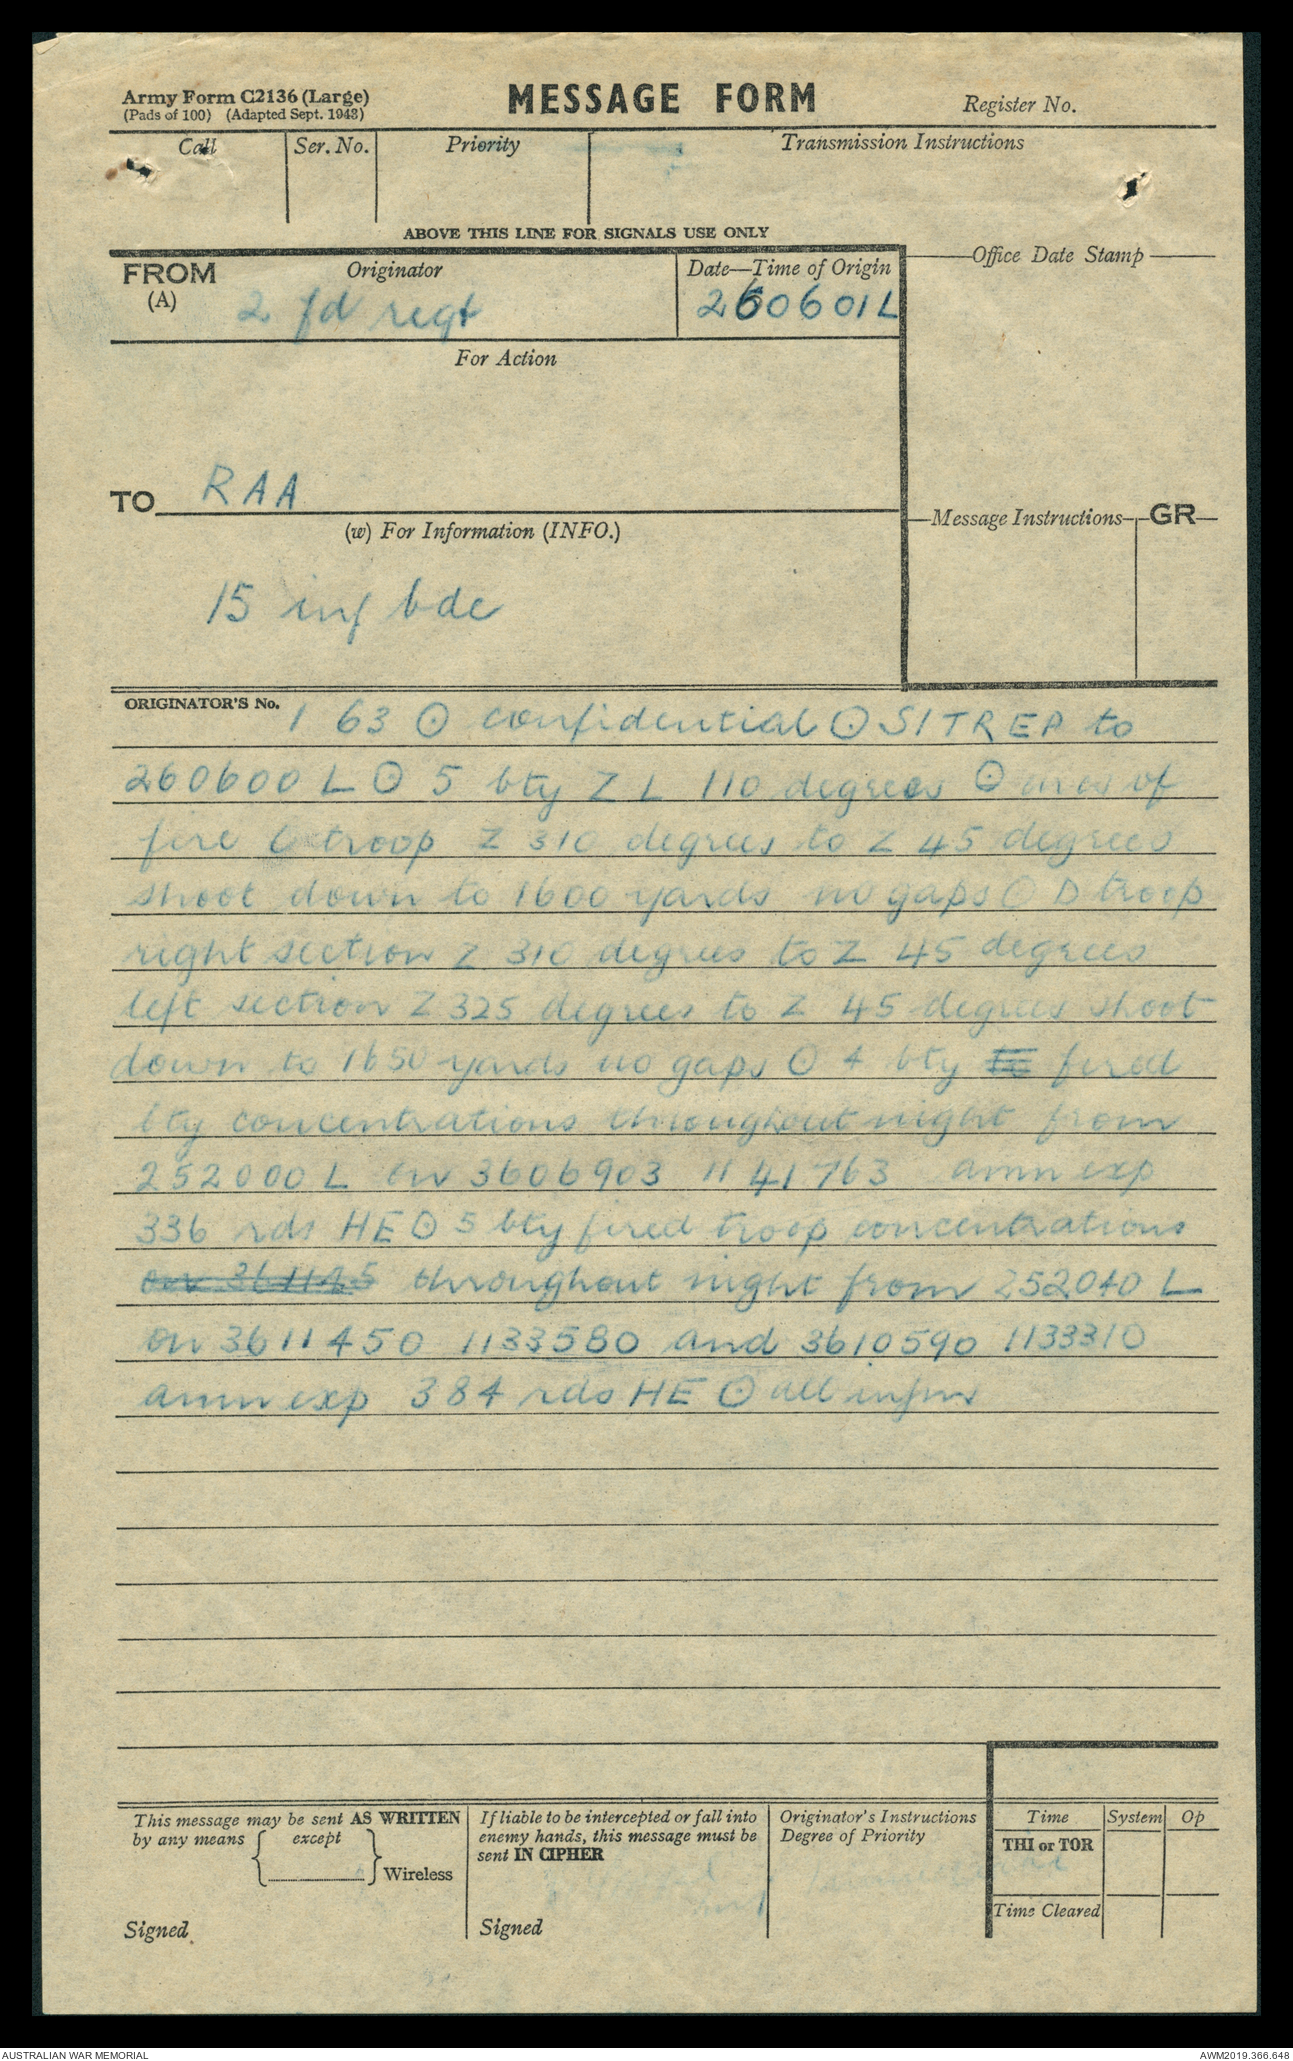 Army Form C2136 (Large)
(Pads of 100) (Adapted Sept. 1943)
MESSAGE FORM
Register No.
Call
Ser. No.
Priority
Transmission Instructions
ABOVE THIS LINE FOR SIGNALS USE ONLY
FROM
(A)
Originator
2 fd regt
Date—Time of Origin
260601L
Office Date Stamp
For Action
TO RAA
(w) For Information (INFO.)
15 inf bde
Message Instructions
GR
ORIGINATOR'S No. 163 ⊙ confidential ⊙ SITREP to
260600 L ⊙ 5 bty Z L 110 degrees ⊙ arcs of
fire C troop Z 310 degrees to Z 45 degrees
shoot down to 1600 yards no gaps ⊙ D troop
right section Z 310 degrees to Z 45 degrees
left section Z 325 degrees to Z 45 degrees shoot
down to 1650 yards no gaps ⊙ 4 bty fired
bty concentrations throughout night from
252000 L on 3606903 1141763 amn exp
336 rds HE ⊙ 5 bty fired troop concentrations
on 361145 throughout night from 252040 L
on 3611450 1133580 and 3610590 1133310
amn exp 384 rds HE ⊙ all infm
This message may be sent AS WRITTEN
by any means { except }
Wireless
Signed
If liable to be intercepted or fall into
enemy hands, this message must be
sent IN CIPHER
Signed
Originator's Instructions
Degree of Priority
Time
System
Op
THI or TOR
Time Cleared
AUSTRALIAN WAR MEMORIAL
AWM2019.366.648